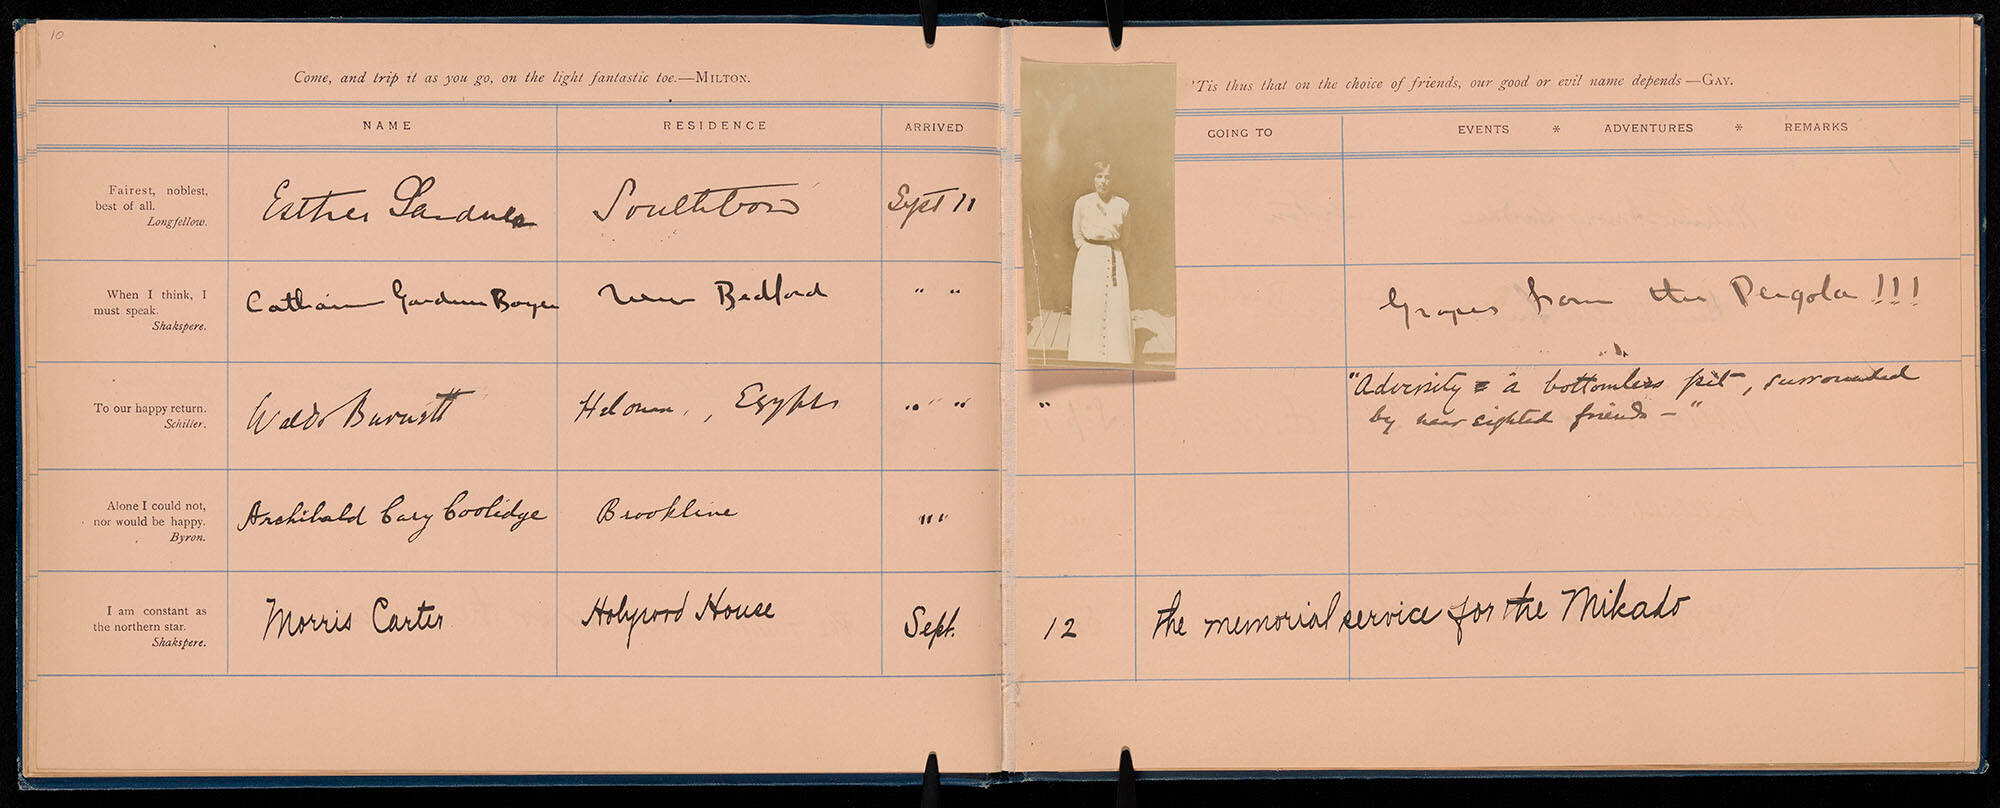 10
Come, and trip it as you go, on the light fantastic toe.—MILTON.
'Tis thus that on the choice of friends, our good or evil name depends—GAY.
NAME RESIDENCE ARRIVED
GOING TO EVENTS * ADVENTURES * REMARKS
Fairest, noblest,
best of all.
Longfellow.
Esther Southboro Sept 11
When I think, I
must speak.
Shakspere.
Gardner New Bedford " "
Grapes from the Pergola!!!
To our happy return.
Schiller.
Waldo Burnett Helouan, Egypt " " "
"Adversity = a bottomless pit, surrounded
by near sighted friends—"
Alone I could not,
nor would be happy.
Byron.
Archibald Cary Coolidge Brookline " "
I am constant as
the northern star.
Shakspere.
Morris Carter Holyrood House Sept. 12 the memorial service for the Mikado